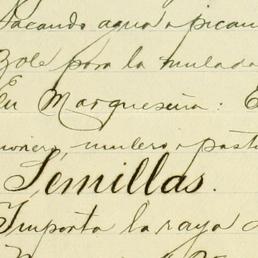 Sacando agua a pican
Zote para la mulada
En Marquesina: E
monero, mulero a past
Semillas.
Importa la raya d